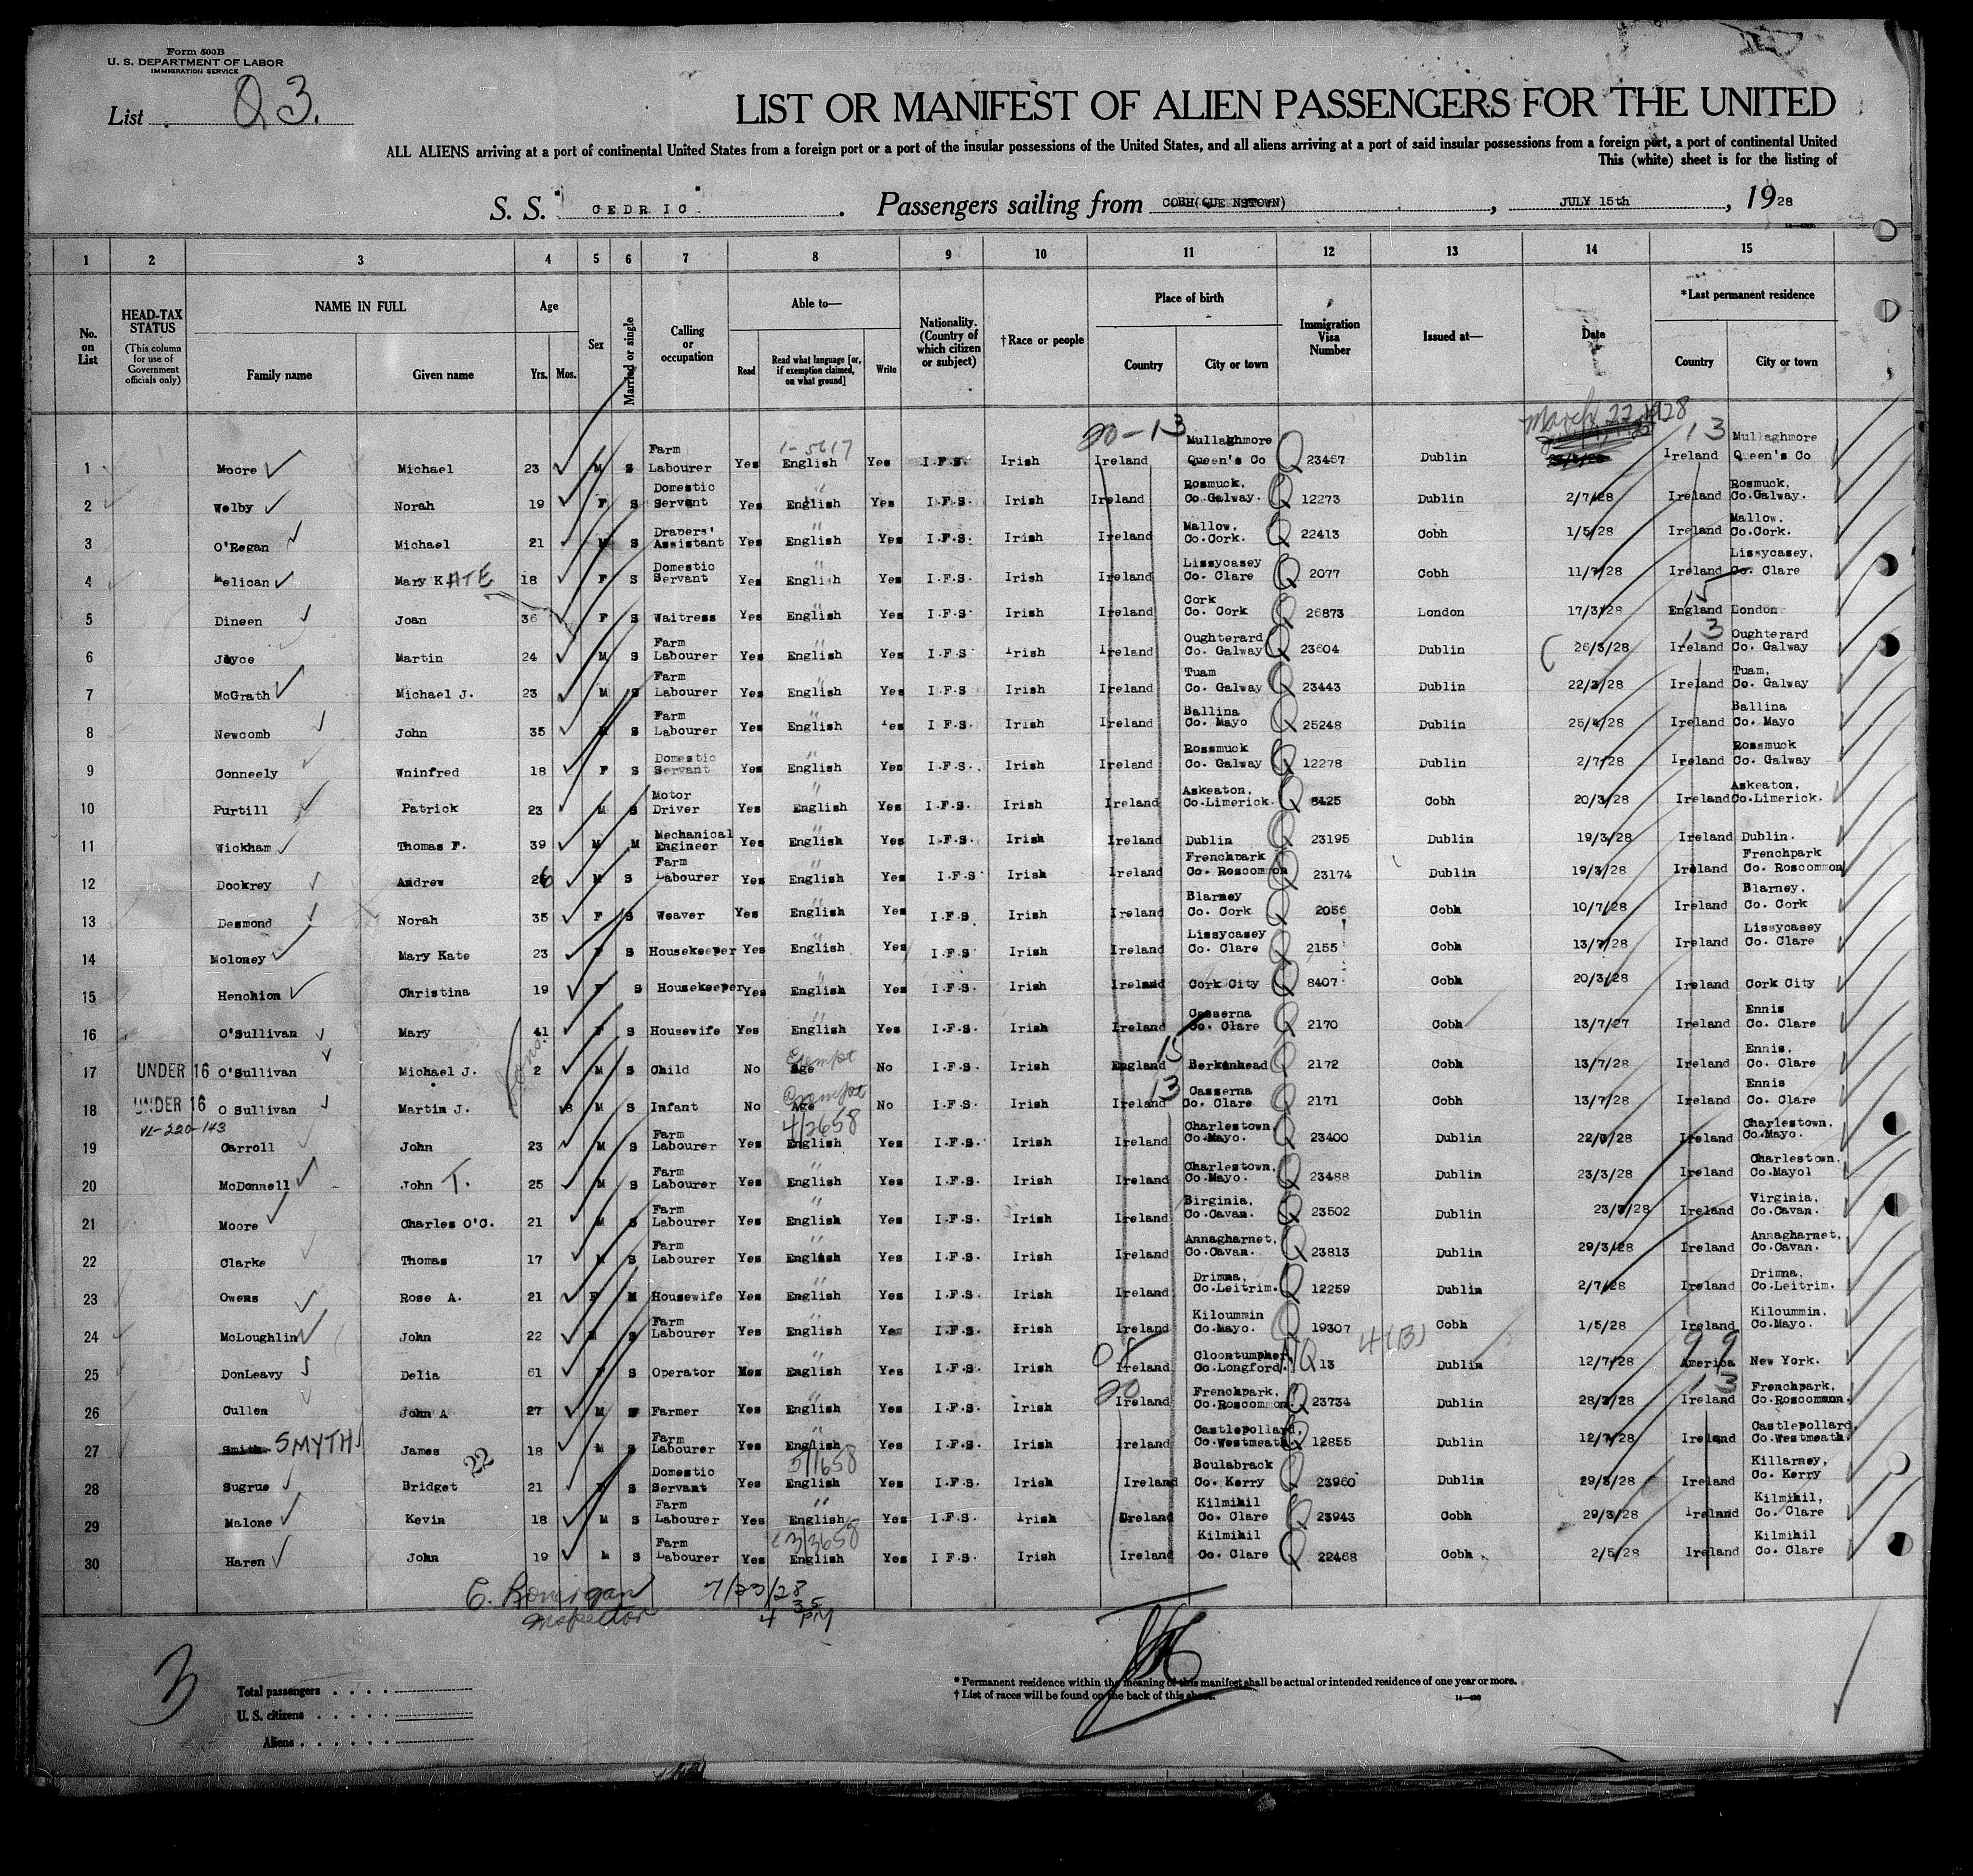 Form 500B
U. S. DEPARTMENT OF LABOR
IMMIGRATION SERVICE
List Q 3.
LIST OR MANIFEST OF ALIEN PASSENGERS FOR THE UNITED
ALL ALIENS arriving at a port of continental United States from a foreign port or a port of the insular possessions of the United States, and all aliens arriving at a port of said insular possessions from a foreign port, a port of continental United
This (white) sheet is for the listing of
S. S. "CEDRIC". Passengers sailing from COBH(QUE NSTOWN), JULY 15th, 1928
1 2 3 4 5 6 7 8 9 10 11 12 13 14 15
No. on List
HEAD-TAX STATUS (This column for use of Government officials only)
NAME IN FULL Family name Given name
Age Yrs. Mos.
Sex
Married or single
Calling or occupation
Able to— Read Read what language [or, if exemption claimed, on what ground] Write
Nationality. (Country of which citizen or subject)
†Race or people
Place of birth Country City or town
Immigration Visa Number
Issued at—
Date
*Last permanent residence Country City or town
20-13 March 22 1928 13
1 Moore Michael 23 M S Farm Labourer Yes 1-5617 English Yes I.F.S. Irish Ireland Mullaghmore Queen's Co Q 23467 Dublin Ireland Mullaghmore Queen's Co
2 Welby Norah 19 F S Domestic Servant Yes English Yes I.F.S. Irish Ireland Rosmuck, Co.Galway. Q 12273 Dublin 2/7/28 Ireland Rosmuck, Co.Galway.
3 O'Regan Michael 21 M S Drapers' Assistant Yes English Yes I.F.S. Irish Ireland Mallow, Co.Cork. Q 22413 Cobh 1/5/28 Ireland Mallow, Co.Cork.
4 Melican Mary KATE 18 F S Domestic Servant Yes English Yes I.F.S. Irish Ireland Lissycasey Co. Clare Q 2077 Cobh 11/7/28 Ireland Lissycasey, Co. Clare
5 Dineen Joan 36 F S Waitress Yes English Yes I.F.S. Irish Ireland Cork Co. Cork Q 26873 London 17/3/28 15 England London
6 Joyce Martin 24 M S Farm Labourer Yes English Yes I.F.S Irish Ireland Oughterard Co. Galway Q 23604 Dublin 26/3/28 13 Ireland Oughterard Co. Galway
7 McGrath Michael J. 23 M S Farm Labourer Yes English Yes I.F.S Irish Ireland Tuam Co. Galway Q 23443 Dublin 22/3/28 Ireland Tuam, Co. Galway
8 Newcomb John 35 M S Farm Labourer Yes English Yes I F.S. Irish Ireland Ballina Co. Mayo Q 25248 Dublin 25/4/28 Ireland Ballina Co. Mayo
9 Conneely Wninfred 18 F S Domestic Servant Yes English Yes I.F.S. Irish Ireland Rossmuck Co. Galway Q 12278 Dublin 2/7/28 Ireland Rossmuck Co. Galway
10 Purtill Patrick 23 M S Motor Driver Yes English Yes I.F.S. Irish Ireland Askeaton, Co.Limerick. Q 8425 Cobh 20/3/28 Ireland Askeaton, Co.Limerick.
11 Wickham Thomas F. 39 M M Mechanical Engineer Yes English Yes I.F.S. Irish Ireland Dublin Q 23195 Dublin 19/3/28 Ireland Dublin.
12 Dockrey Andrew 26 M S Farm Labourer Yes English Yes I.F.S Irish Ireland Frenchpark Co. Roscommon Q 23174 Dublin 19/3/28 Ireland Frenchpark Co. Roscommon
13 Desmond Norah 35 F S Weaver Yes English Yes I.F.S Irish Ireland Blarney Co. Cork Q 2056 Cobh 10/7/28 Ireland Blarney, Co. Cork
14 Moloney Mary Kate 23 F S Housekeeper Yes English Yes I.F.S Irish Ireland Lissycasey Co. Clare Q 2155 Cobh 13/7/28 Ireland Lissycasey Co. Clare
15 Henchion Christina 19 F S Housekeeper Yes English Yes I.F.S. Irish Ireland Cork City Q 8407 Cobh 20/3/28 Ireland Cork City
16 O'Sullivan Mary 41 F S Housewife Yes English Yes I.F.S. Irish Ireland Casserna Co. Clare Q 2170 Cobh 13/7/27 Ireland Ennis Co. Clare
17 UNDER 16 O'Sullivan Michael J. 2 M S Child No Exempt Age No I.F.S. Irish 15 England Berkenhead Q 2172 Cobh 13/7/28 Ireland Ennis, Co. Clare
18 UNDER 16 O Sullivan Martin J. 8 M S Infant No Exempt Age No I.F.S. Irish 13 Ireland Casserna Co. Clare Q 2171 Cobh 13/7/28 Ireland Ennis Co. Clare
VL-220-143 4/2658
19 Carroll John 23 M S Farm Labourer Yes English Yes I.F.S. Irish Ireland Charlestown, Co.Mayo. Q 23400 Dublin 22/3/28 Ireland Charlestown, Co.Mayo.
20 McDonnell John T. 25 M S Farm Labourer Yes English Yes I.F.S. Irish Ireland Charlestown, Co.Mayo. Q 23488 Dublin 23/3/28 Ireland Charlestown. Co.Mayol
21 Moore Charles O'C. 21 M S Farm Labourer Yes English Yes I.F.S. Irish Ireland Birginia, Co.Cavan. Q 23502 Dublin 23/3/28 Ireland Virginia, Co.Cavan.
22 Clarke Thomas 17 M S Farm Labourer Yes English Yes I.F.S. Irish Ireland Annagharnet, Co.Cavan. Q 23813 Dublin 29/3/28 Ireland Annagharnet, Co.Cavan.
23 Owens Rose A. 21 F M Housewife Yes English Yes I.F.S. Irish Ireland Drimna, Co.Leitrim. Q 12259 Dublin 2/7/28 Ireland Drimna, Co.Leitrim.
24 McLoughlin John 22 M S Farm Labourer Yes English Yes I.F.S. Irish Ireland Kilcummin Co.Mayo. Q 19307 Cobh 1/5/28 Ireland Kilcummin, Co.Mayo.
25 DonLeavy Delia 61 F S Operator Yes English Yes I.F.S. Irish Ireland Cloontumpher Co.Longford. NQ 13 4(B) Dublin 12/7/28 99 America New York.
26 Cullen John A 27 M S Farmer Yes English Yes I.F.S. Irish 20 Ireland Frenchpark, Co.Roscommon. Q 23734 Dublin 28/3/28 13 Ireland Frenchpark, Co.Roscommon.
27 Smith SMYTH James 18 M S Farm Labourer Yes English Yes I.F.S. Irish Ireland Castlepollard, Co.Westmeath Q 12855 Dublin 12/7/28 Ireland Castlepollard, Co.Westmeath
22 5/1658
28 Sugrue Bridget 21 F S Domestic Servant Yes English Yes I.F.S. Irish Ireland Boulabrack Co. Kerry Q 23960 Dublin 29/3/28 Ireland Killarney, Co. Kerry
29 Malone Kevin 18 M S Farm Labourer Yes English Yes I.F.S. Irish Ireland Kilmihil Co. Clare Q 23943 Cobh 29/3/28 Ireland Kilmihil, Co. Clare
30 Haren John 19 M S Farm Labourer Yes English Yes I F.S. Irish Ireland Kilmihil Co. Clare Q 22468 Cobh 2/5/28 Ireland Kilmihil Co. Clare
Inspector 7/23/28 4 35 PM
3
Total passengers
U. S. citizens
Aliens
* Permanent residence within the meaning of this manifest shall be actual or intended residence of one year or more.
† List of races will be found on the back of this sheet.